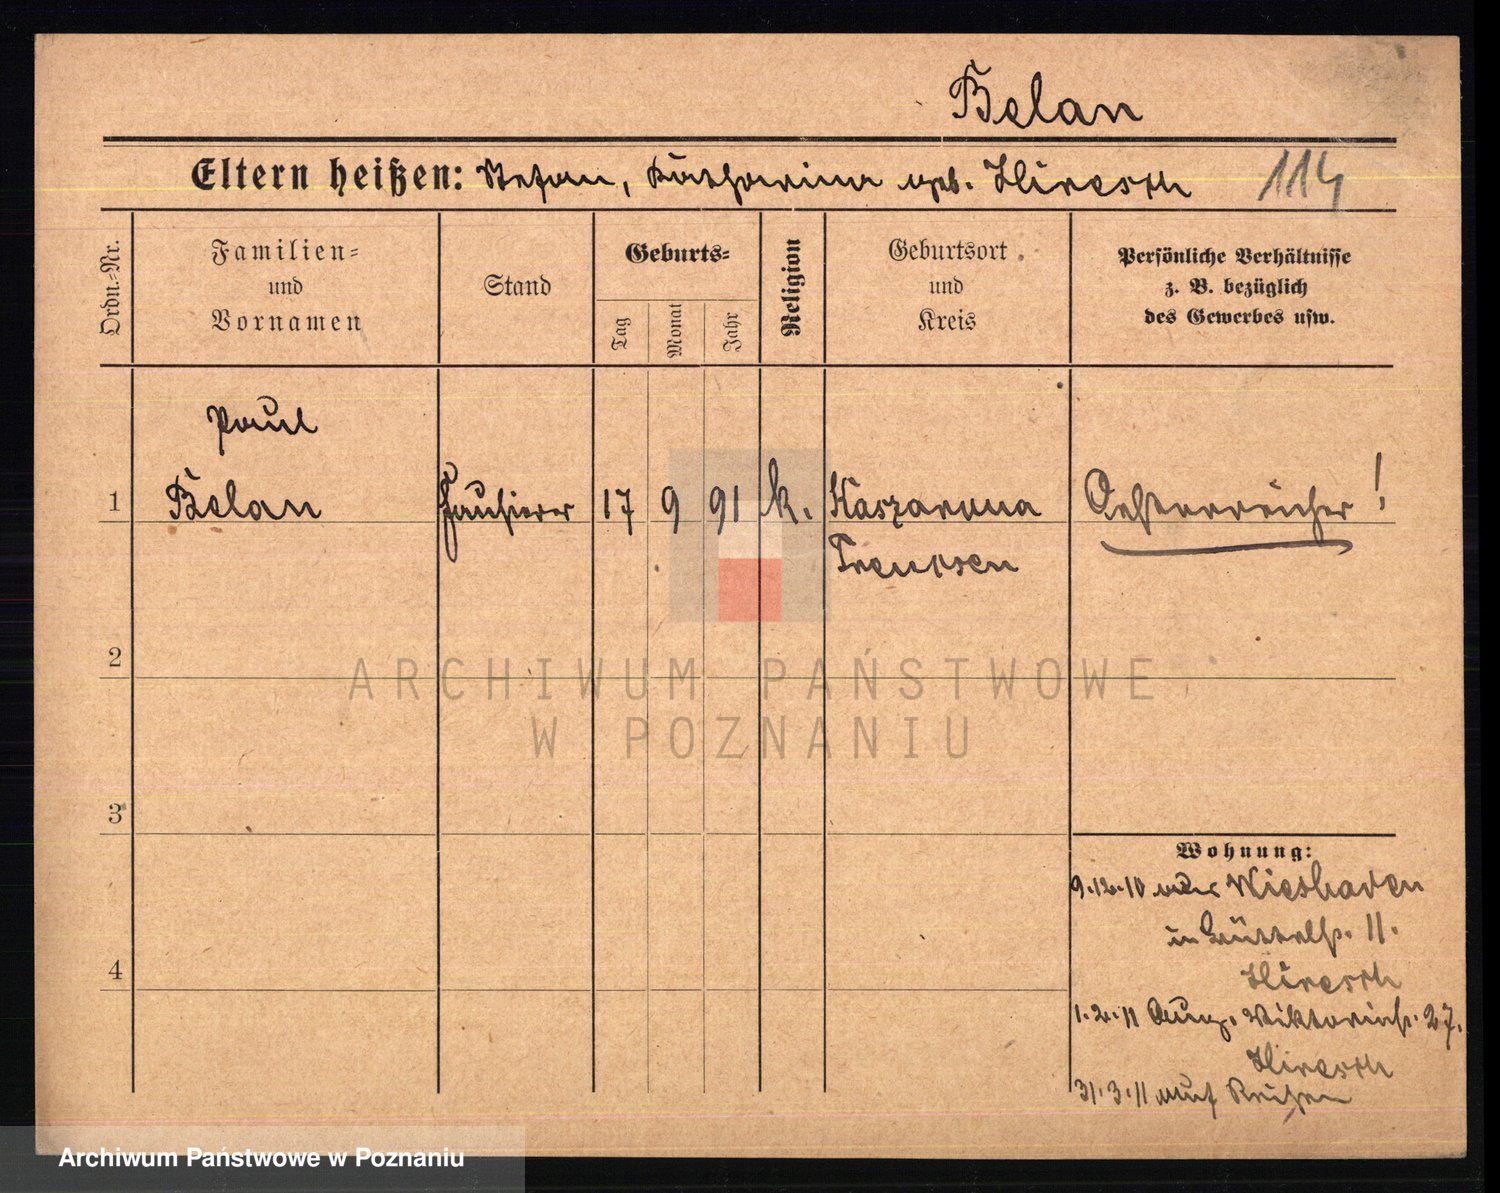 Belan
Eltern heißen: Stefan, Katharina geb. Hiresch
114
Ordn.-Nr.
Familien-
und
Vornamen
Stand
Geburts-
Tag
Monat
Jahr
Religion
Geburtsort
und
Kreis
Persönliche Verhältnisse
z. B. bezüglich
des Gewerbes usw.
Paul
1 Belan Hausierer 17 9 91 k. Oesterreicher!
2
3
4
Wohnung:
9.12.10 Wiesbaden
in 11.
Hiresch
1.2.11 Viktoriastr. 27.
Hiresch
31.3.11 auf Reisen
ARCHIWUM PAŃSTWOWE
W POZNANIU
Archiwum Państwowe w Poznaniu